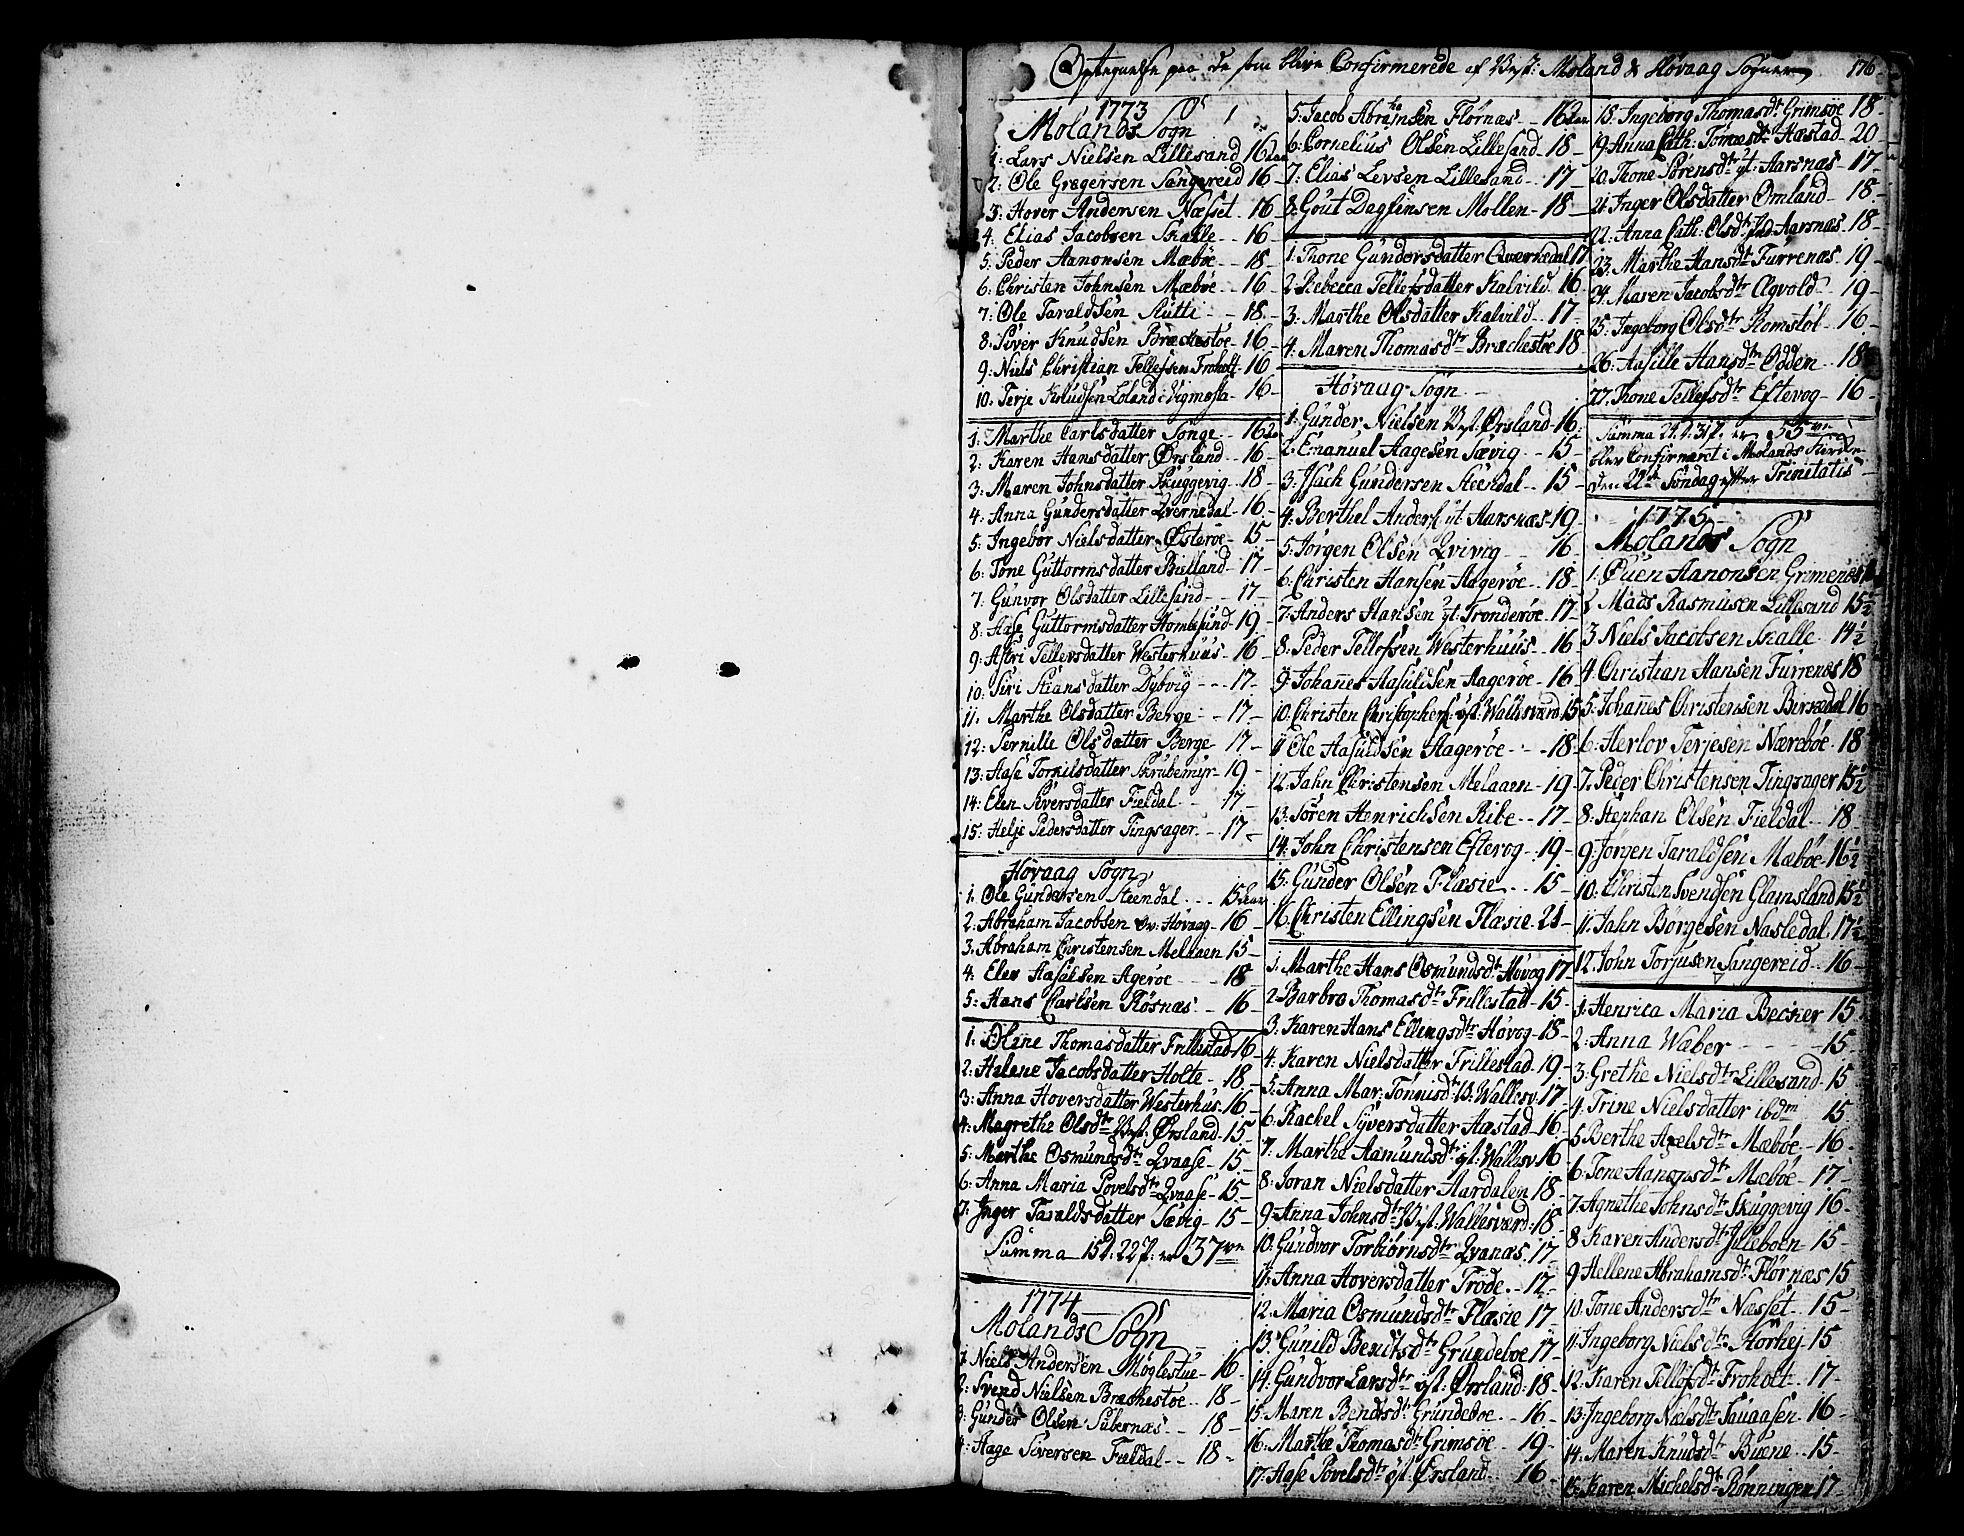 Optegnelse paa de som blive Confirmerede af Vest: Moland & Høvaag Sogner 176
1773
Molands Sogn
1: Lars Nielsen Lillesand 16 aar
2: Ole Gregersen Sangereid 16
3: Hover Andersen Næsset 16
4: Elias Jacobsen Skalle 16
5: Peder Aanonsen Mæbøe 18
6: Christen Johnsen Mæbøe 16
7: Ole Taraldsen Kutti 18
8: Siver Knudsen Brækestøe 16
9: Niels Christian Tellefsen Froholt 16
10: Terje Knudsen Loland i Vigmosta 16
1: Marthe Carlsdatter Songe 16
2: Karen Hansdatter Ørsland 16
3: Maren Johnsdatter Skuggevig 18
4: Anna Gundersdatter Qvernedal 16
5: Ingebor Nielsdatter Østerøe 15
6: Tone Guttormsdatter Bielland 17
7: Gunvor Olsdatter Lillesand 17
8: Aase Guttormsdatter Homblsund 19
9: Astri Tellevsdatter Westerhuus 16
10: Siri Stiansdatter Dybvig 17
11. Marthe Olsdatter Berge 17
12: Pernille Olsdatter Berge 17
13: Aase Torkilsdatter Skrubemyr 19
14: Elen Siversdatter Fieldal 17
15: Helje Pedersdatter Tingsager 17
Høvaag Sogn
1. Ole Gundersen Steendal 15 aar
2. Abraham Jacobsen Høvaag 16
3. Abraham Christensen Melaaen 15
4. Elev Aasulsen Agerøe 18
5: Hans Carlsen Røsnæs 16
1. Oline Thomasdatter Frillestad 16
2: Helene Jacobsdatter Holte 18
3: Anna Hoversdatter Westerhus 16
4: Magrethe Olsdtr Vest: Ørsland 15
5: Marthe Osmundsdtr Qvaase 15
6: Anna Maria Povelsdtr Qvaase 15
7. Inger Taraldsdatter Sævig 15
Summa 15 d: 22 p: er 37
1774
Molands Sogn
1 Niels Andersen Møglestue 16
2: Svend Nielsen Brækestøe 18
3: Gunder Olsen Subernæs 18
4: Aage Siversen Fieldal 18
5: Jacob Abramsen Flørnæs 16 aar
6: Cornelius Olsen Lillesand 18
7: Elias Levsen Lillesand 17
8: Gout Dagfinsen Mollen 18
1: Thone Gundersdatter Qværnedal 17
2 Rebecca Tellefsdatter Kalvild 16
3: Marthe Olsdatter Kalvild 17
4: Maren Thomasdtr Brækestøe 18
Høvaag Sogn
1: Gunder Nielsen Vest: Ørsland 16
2: Emanuel Aagesen Sævig 15
3: Isach Gundersen Steendal 15
4: Berthel Anders: yt: Aarsnæs 19
5: Jørgen Olsen Qvivig 16
6: Christen Hansen Aagerøe 18
7: Anders Hansen yt: Tronderøe 17
8: Peder Tellofsen Westerhuus 16
9: Johannes Aasulsen Aagerøe 16
10: Christen Christophers: øst: Wallesværd 15
11 Ole Aasuldsen Aagerøe 18
12. Jahn Christensen Melaaen 19
13: Søren Henrichsen Ribe 17
14: John Christensen Eftevog 19
15: Gunder Olsen Flæsie 15
16. Christen Ellingsen Flæsie 21
1. Marthe Hans Osmundsdtr Høvog 17
2 Barbro Thomasdtr Frillestad 15
3: Karen Hans Ellingsdtr Høvog 18
4: Karen Nielsdatter Frillestad 19
5: Anna Mar: Tønnisdtr V: Wallesv 17
6: Rachel Syversdatter Hæstad 16
7: Marthe Aamundsdtr yt: Wallesv 16
8: Joran Nielsdatter Aardalen 18
9: Anna Johnsdtr Vest: Wallesværd 18
10: Gundvor Torbiørnsdtr Qvanæs 17
11: Anna Hoversdatter Trøde 17
12: Maria Osmundsdtr Flæsie 17
13: Gunild Bendtsdtr Grundebøe 17
14: Gundvor Larsdtr yt: Ørsland 18
15: Maren Bendtsdtr Grundebøe 16
16: Marthe Thomasdtr Grimsøe 19
17: Aase Povelsdtr yt: Ørsland 16
18: Ingeborg Thomasdtr Grimsøe 18
19: Anna Cath: Tomasdtr Hæstad 20
20: Thone Sørensdtr yt: Aarsnæs 17
21: Inger Olsdatter Omland 18
22: Anna Cath: Olsdtr Ind Aarsnæs 18
23: Marthe Hansdtr Furrenæs 19
24: Maren Jacobsdtr Agvold 19
25: Ingeborg Olsdtr Komstøl 16
26: Aasille Hansdtr Odden 18
27: Thone Tellefsdtr Eftevog 16
Summa 24 d: 31 p: er 55
blev Confirmeret i Molands Kirke
den 22de Søndag efter Trinitatis
1775
Molands Sogn
1: Ouen Aanonsen Grimenæs
2 Mads Rasmusen Lillesand 15½
3 Niels Jacobsen Skalle 14½
4. Christian Hansen Furrenæs 18
5: Johannes Christensen Birkedal 16
6: Herlov Terjesen Nærebøe 18
7. Peder Christensen Tingsager 15½
8: Stephan Olsen Fieldal 18
9: Jørgen Taraldsen Mæbøe 16½
10: Christen Svendsen Glamsland 15½
11. Jahn Børgesen Nasledal 17½
12. John Torjusen Sangereid 16
1: Henrica Maria Becker 15
2: Anna Wæber 15
3: Grethe Nielsdtr Lillesand 15
4. Trine Nielsdatter ibdm 15
5 Berthe Axelsdtr Mæbøe 16
6: Tone Aanonsdtr Mæbøe 17
7 Agnethe Johnsdtr Skuggevig 16
8 Karen Andersdtr Juleboen 15
9 Hellene Abrahamsdtr Flørnæs 15
10. Tone Andersdtr Næsset 15
11. Ingeborg Nielsdtr Hørhej 15
12 Karen Tellofsdtr Froholt 17
13: Ingeborg Nielsdtr Sauaasen 16
14: Maren Knudsdtr Buene 15
15: Karen Michelsdtr Rønningen 17